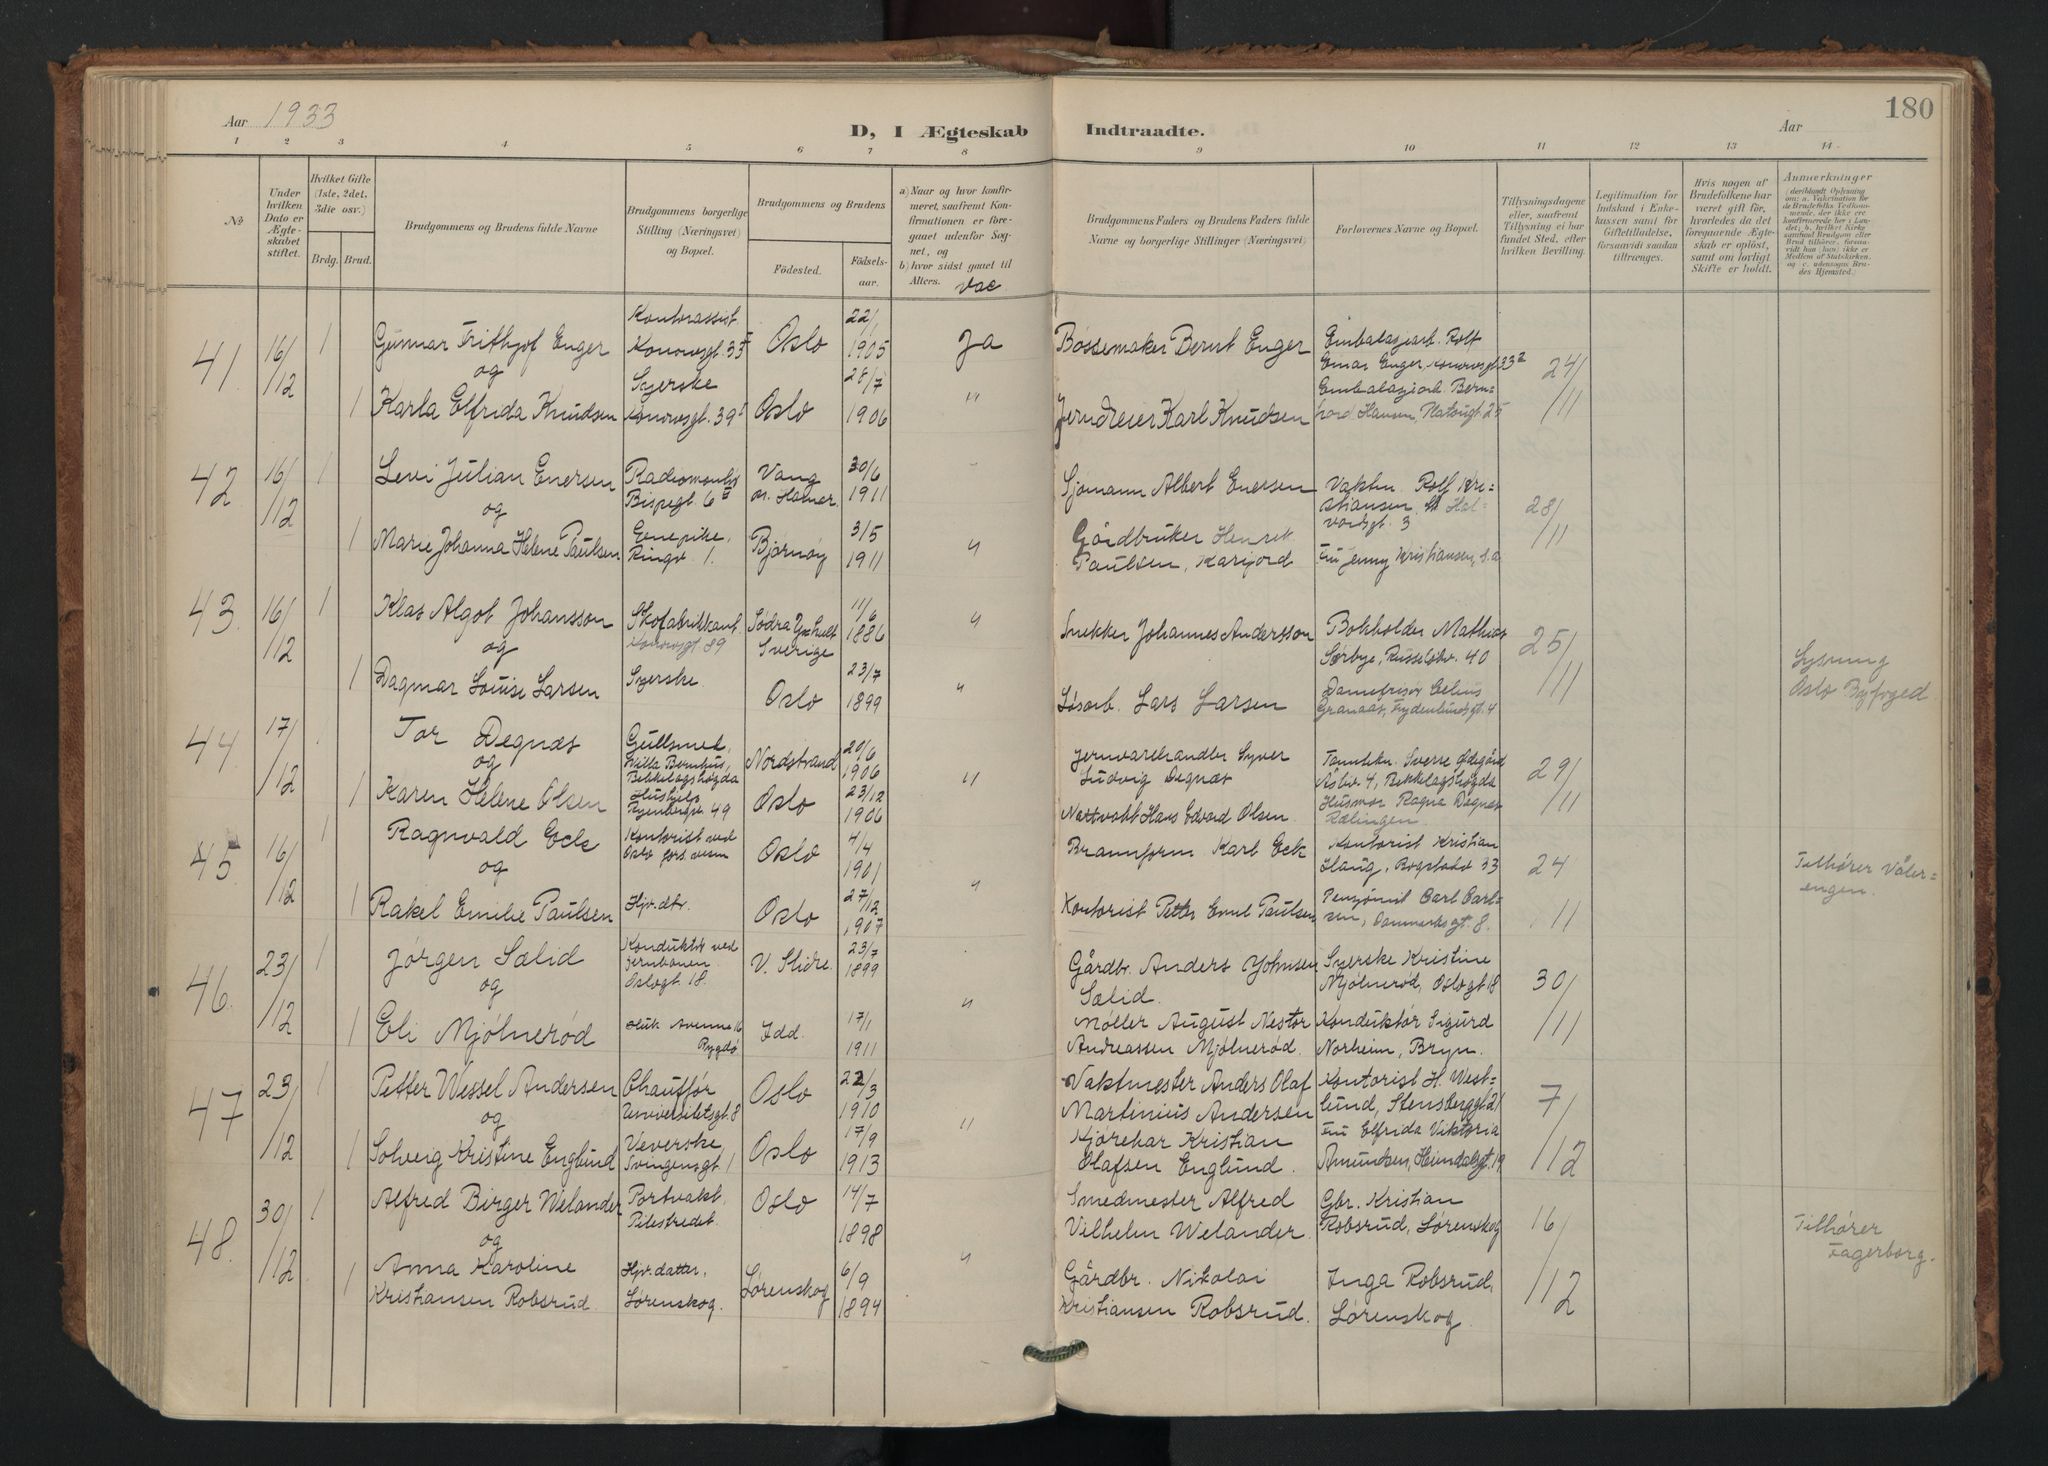 Aar 1933
D, I Ægteskab Indtraadte.
Aar
180
1 2 3 4 5 6 7 8 9 10 11 12 13 14
№
Under hvilken Dato er Ægteskabet stiftet.
Hvilket Gifte (1ste, 2det, 3die osv.)
Brdg. Brud.
Brudgommens og Brudens fulde Navne
Brudgommens borgerlige Stilling (Næringsvei) og Bopæl.
Brudgommens og Brudens
Fødested.
Fødselsaar.
a) Naar og hvor konfirmeret, saafremt Konfirmationen er foregaaet udenfor Sognet, og
b) hvor sidst gaaet til Alters. vac
Brudgommens Faders og Brudens Faders fulde Navne og borgerlige Stillinger (Næringsvei)
Forlovernes Navne og Bopæl.
Tillysningsdagene eller, saafremt Tillysning ei har fundet Sted, efter hvilken Bevilling.
Legitimation for Indskud i Enkekassen samt for Giftetilladelse, forsaavidt saadan tiltrænges.
Hvis nogen af Brudefolkene har været gift før, hvorledes da det foregaaende Ægteskab er opløst, samt om lovligt Skifte er holdt.
Anmærkninger
41 16/12 1 Gunnar Frithjof Enger
Kontorassist. Konowsgt. 33 I
Oslo 22/1 1905 Ja
Bøssemaker Bernt Enger
Embalagearb. Rolf Einar Enger, Konowsgt. 33 2
24/11
og
1 Karla Elfrida Knudsen
Syerske Konowsgt. 39 I
Oslo 28/7 1906 "
Jerndreier Karl Knudsen
Embalagearb. Bernhard Hansen, Platougt. 25
42 16/12 1 Levi Julian Enersen
Radiomontør Bispegt. 6 II
Vang p. Hamar. 30/6 1911
Sjømann Albert Enersen
Vaktm. Rolf Kristiansen, St. Halvardsgt. 3
28/11
og
1 Marie Johanna Helene Paulsen
Enepike, Ringv. 1.
Bjørnøy 3/5 1911 "
Gårdbruker Henrik Paulsen, Karijord
Fru Jenny Kristiansen, s.a
43 16/12 1 Klas Algot Johansson
Skofabrikkarb. Konowsgt. 89
Södra Sverige 11/6 1886 "
Snekker Johannes Andersson
Bokholder Mathias Sørbye, 40
25/11
og
1 Dagmar Louise Larsen
Syerske
Oslo 23/7 1899 "
Løsarb. Lars Larsen
Damefrisør Granaas, Frydenlundsgt. 4
Lysning
Oslo Byfoged
44 17/12 1 Tor Degnæs
Gullsmed, Villa Bernhus, Bekkelagshøgda
Nordstrand 20/6 1906
Jernvarehandler Syver Ludvig Degnæs
Tanntekn. Sverre Ødegård 4, Bekkelagshøgda
29/11
og
1 Karen Helene Olsen
Hushjelp Ryenbergv. 49
Oslo 23/12 1906 "
Nattvakt Hans Edvard Olsen.
Husmor Ragna Degnæs Rælingen.
45 16/12 1 Ragnvald Eck
Kontorist ved Oslo fors.vesen
Oslo 4/4 1901
Brannform. Karl Eck
Kontorist Kristian Haug, Bogstadv 33
24/11
og
1 Rakel Emilie Paulsen
Hjv.dtr.
Oslo 27/12 1907 "
Kontorist Petter Emil Paulsen
Pensjonist Carl Carlsen, Danmarksgt. 8.
Tilhører Vålerengen.
46. 23/12 1 Jørgen Sælid
Konduktør ved jernbanen Oslogt 18.
V. Slidre. 23/7 1899
Gårdbr. Anders Johnsen Sælid.
Syerske Kristine Mjølnerød, Oslogt 18
30/11
og
1 Eli Mjølnerød
Huk Avenue 16 Bygdø
Idd. 17/1 1911 "
Møller August Nestor Andreassen Mjølnerød.
Konduktør Sigurd Norheim, Bryn.
47 23/12 1 Petter Wessel Andersen
Chauffør Universitetsgt. 8
Oslo 22/3 1910
Vaktmester Anders Olaf Martinius Andersen
Kontorist H. Westlund, Stensberggt 21
7/12
og
1 Solveig Kristine Englund
Veverske Svingensgt. 1
Oslo 17/9 1913 "
Kjørekar Kristian Olafsen Englund.
Fru Elfrida Viktoria Amundsen, Heimdalsgt. 19
48. 30/12 1 Alfred Birger Welander
Portvakt, Pilestredet.
Oslo 14/7 1898
Smedmester Alfred Vilhelm Welander.
Gbr. Kristian Robsrud, Lørenskog
16/12
og
1 Anna Karoline Kristiansen Robsrud.
Hjv. datter, Lørenskog.
Lørenskog 6/9 1894 "
Gårdbr. Nikolai Kristiansen Robsrud.
Inga Robsrud, Lørenskog.
Tilhører
Fagerborg.